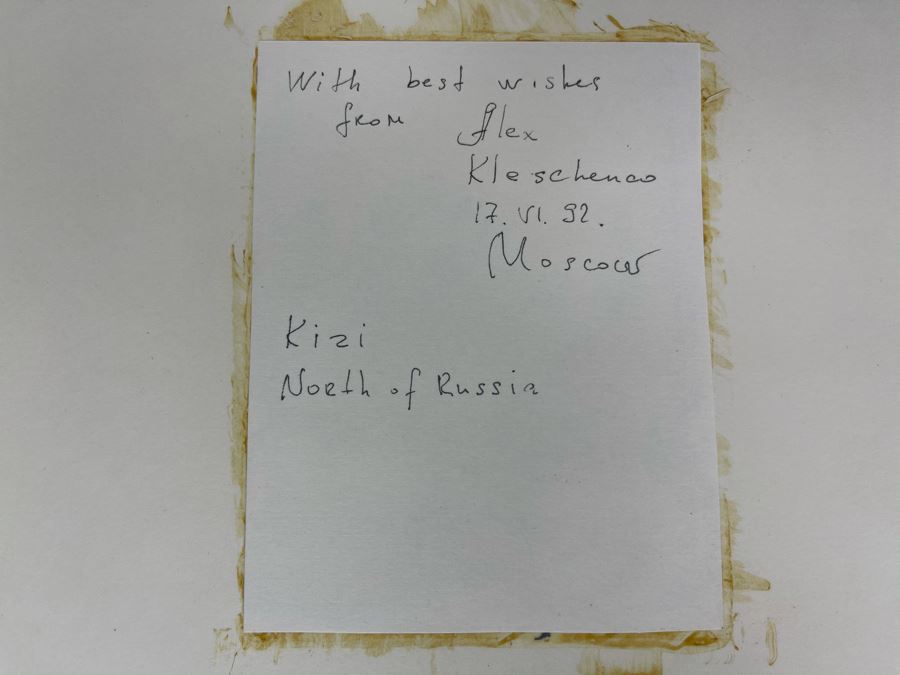 With best wishes
from Alex
Kleschenco
17. VI. 92.
Moscow
Kizi
North of Russia